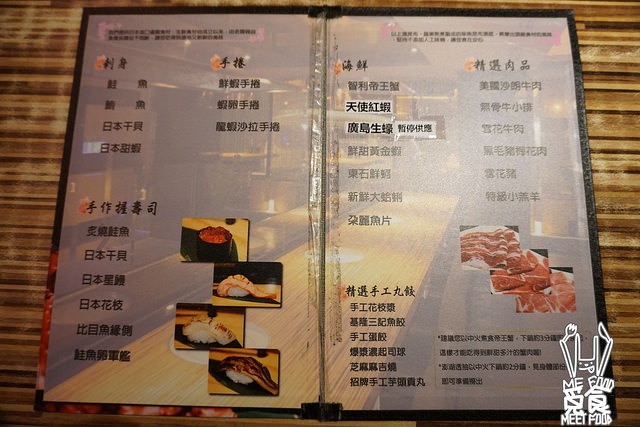 刺身
鮭魚
鮪魚
日本干貝
日本甜蝦
手捲
鮮蝦手捲
蝦卵手捲
龍蝦沙拉手捲
手作握壽司
炙燒鮭魚
日本干貝
日本星鰻
日本花枝
比目魚緣側
鮭魚卵軍艦
海鮮
智利帝王蟹
天使紅蝦
廣島生蠔 暫停供應
鮮甜黃金蝦
東石鮮蚵
新鮮大蛤蜊
朵麗魚片
精選手工丸餃
手工花枝漿
基隆三記魚餃
手工蛋餃
爆漿濃起司球
芝麻麻吉燒
招牌手工芋頭貢丸
精選肉品
美國沙朗牛肉
無骨牛小排
雪花牛肉
黑毛豬梅花肉
雲花豬
特級小羔羊
*建議您以中火煮食帝王蟹，下鍋約3分鐘
這樣才能吃得到鮮甜多汁的蟹肉喔!
即可準備撈出
ME FOOD
覓食
MEET FOOD